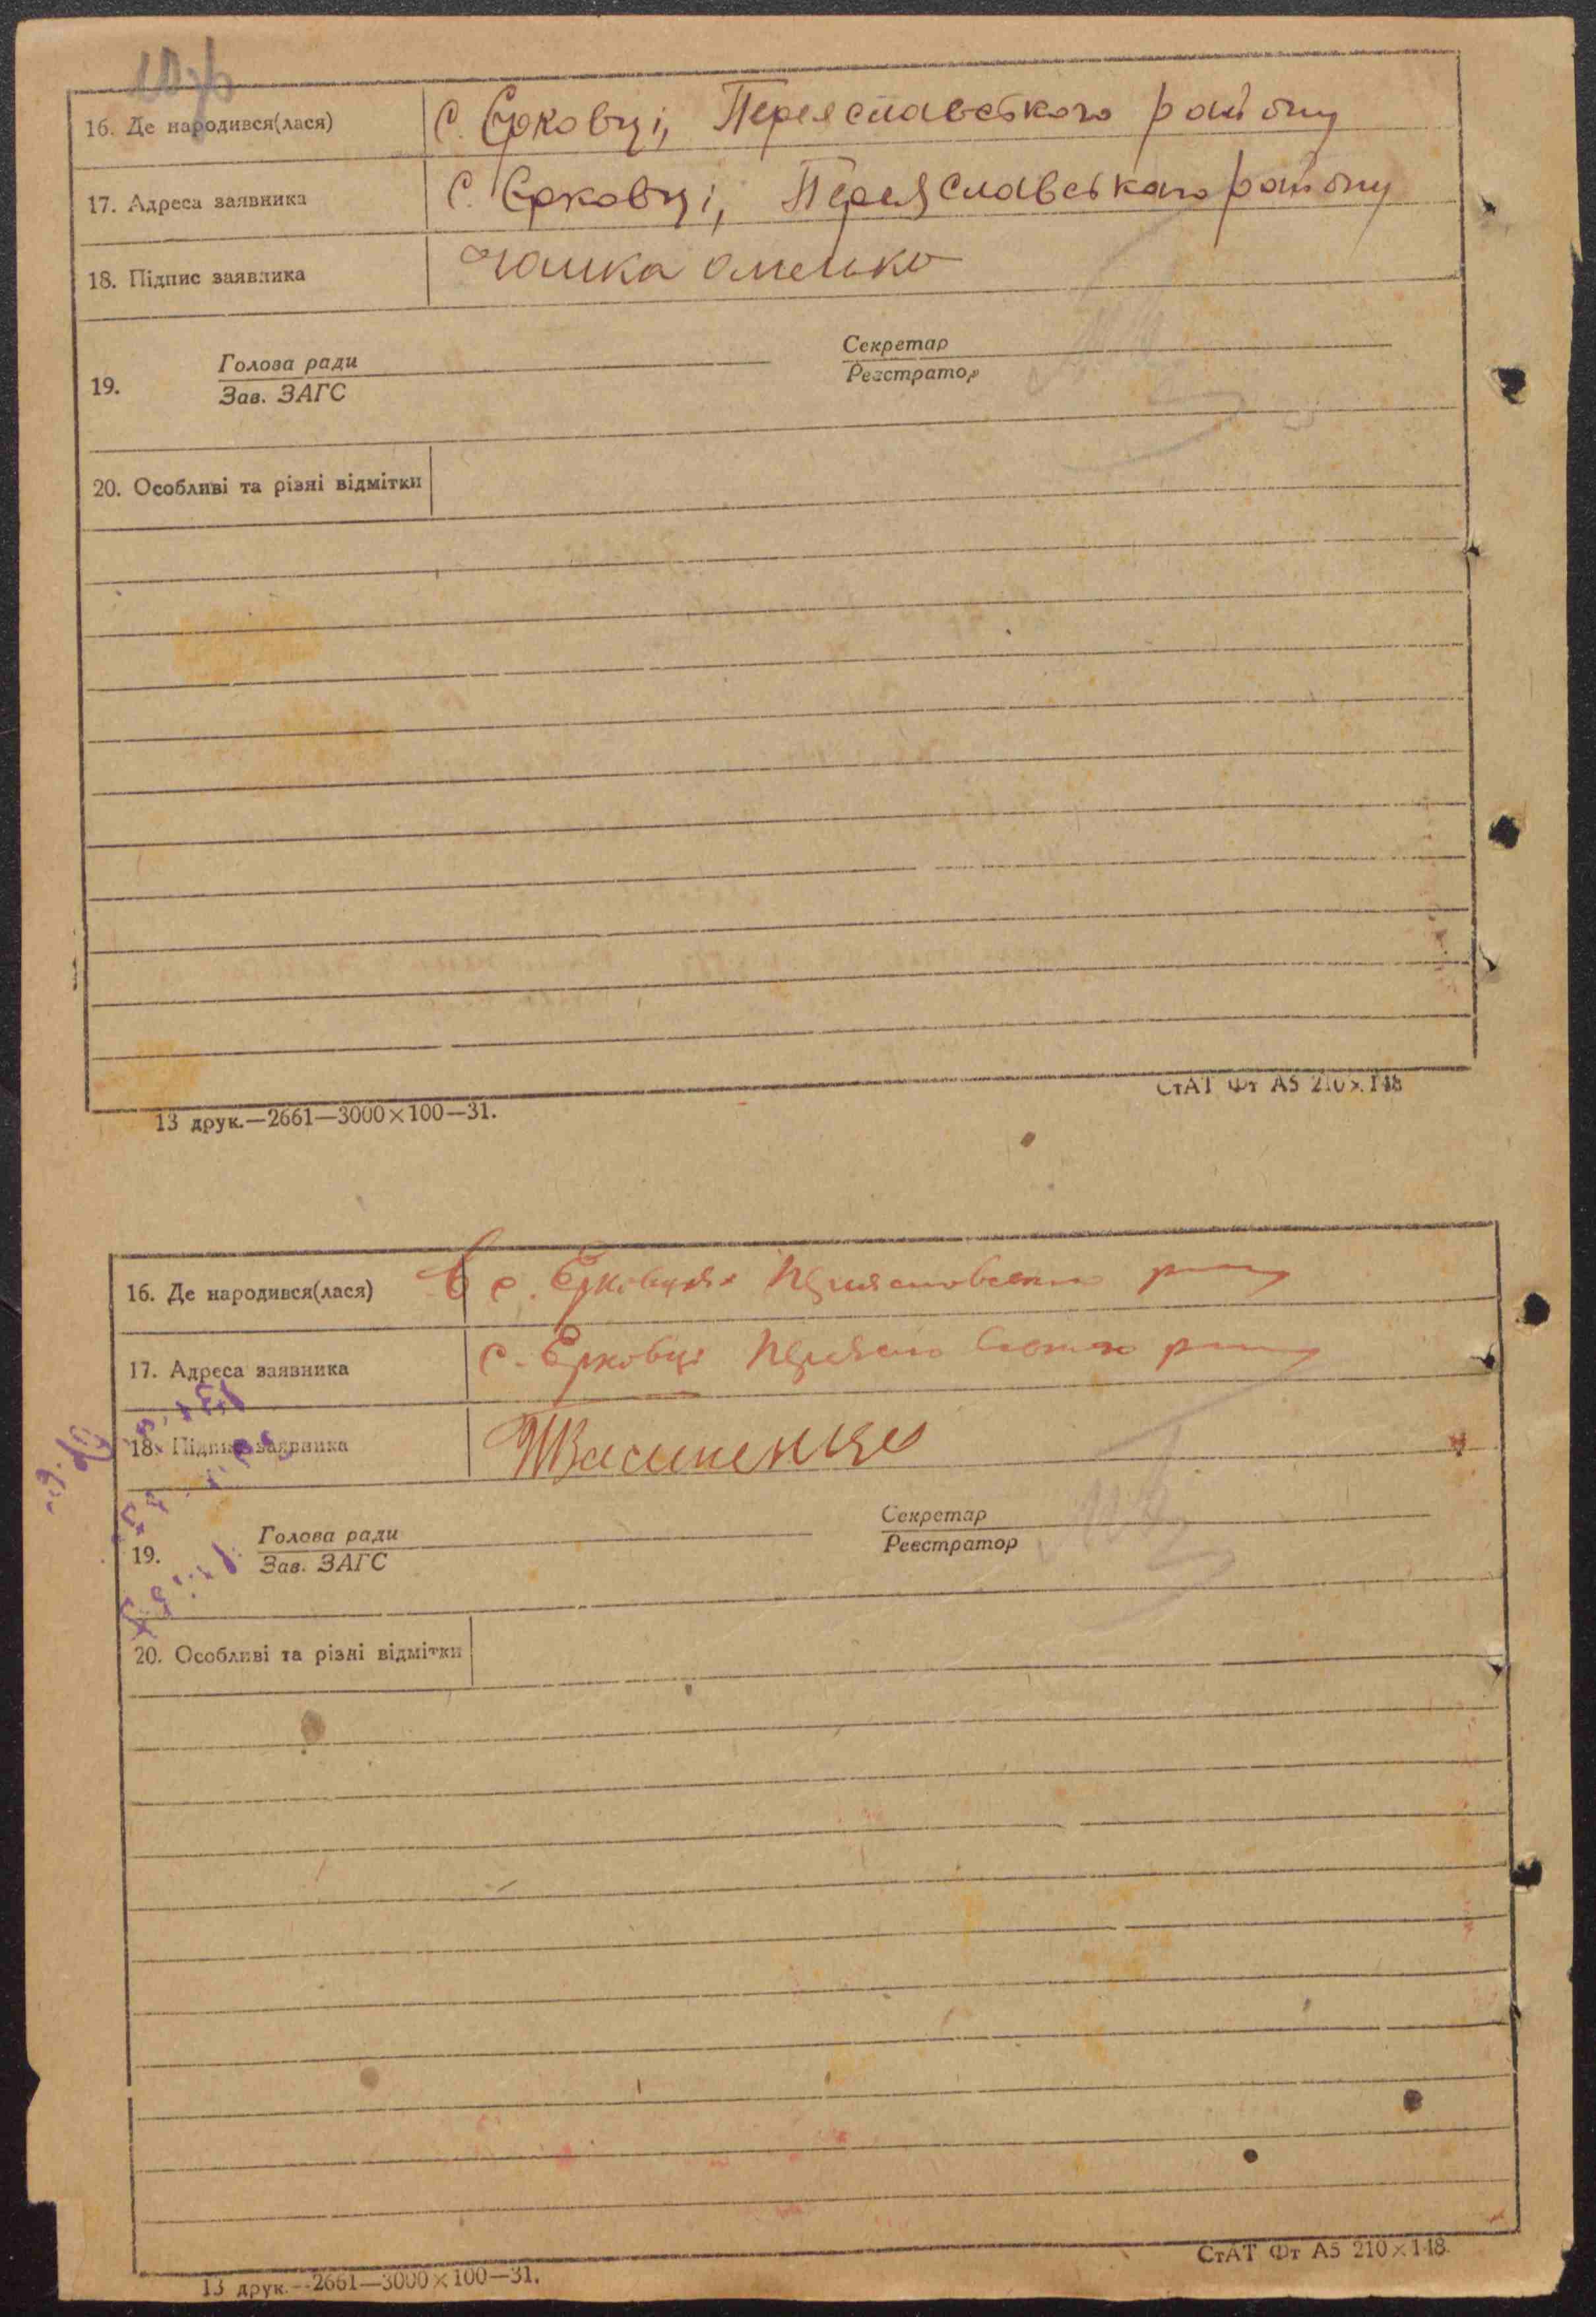 16. Де народився(лася) с. Єрковці, Переяславського району
17. Адреса заявника с. Єрковці, Переяславського району
18. Підпис заявника
19. Голова ради Секретар
Зав. ЗАГС Реєстратор
20. Особливі та різні відмітки
СтАТ Фт А5 210×148
13 друк.—2661—3000×100—31.
16. Де народився(лася) В с.
17. Адреса заявника с. Ерковці
18. Підпис заявника
19. Голова ради Секретар
Зав. ЗАГС Реєстратор
20. Особливі та різні відмітки
СтАТ Фт А5 210×148.
13 друк.—2661—3000×100—31.